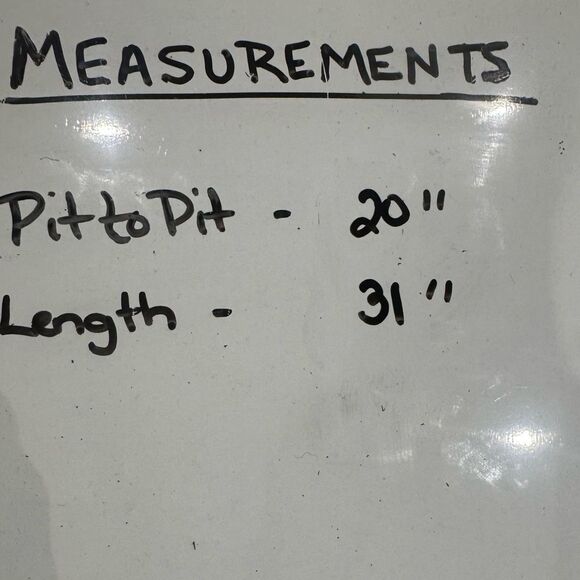 MEASUREMENTS
Pit to Pit - 20"
Length - 31"